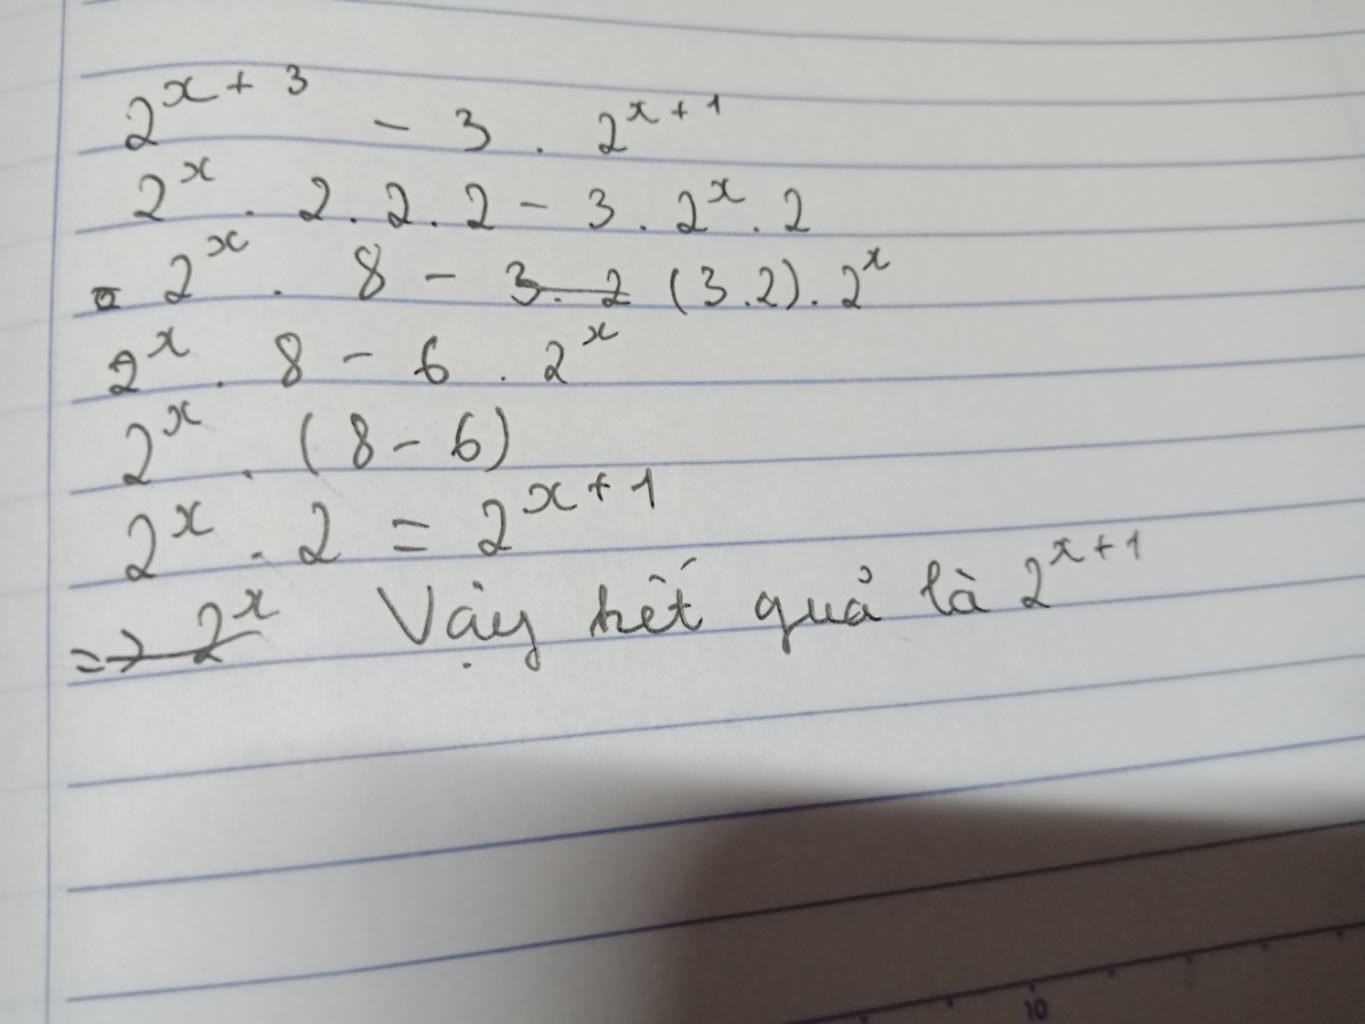 2^{x+3} - 3 . 2^{x+1}
2^x . 2 . 2 . 2 - 3 . 2^x . 2
2^x . 8 - ~~3. 2~~ (3.2). 2^x
2^x . 8 - 6 . 2^x
2^x . (8 - 6)
2^x . 2 = 2^{x+1}
~~=> 2^x~~ Vậy kết quả là 2^{x+1}
10